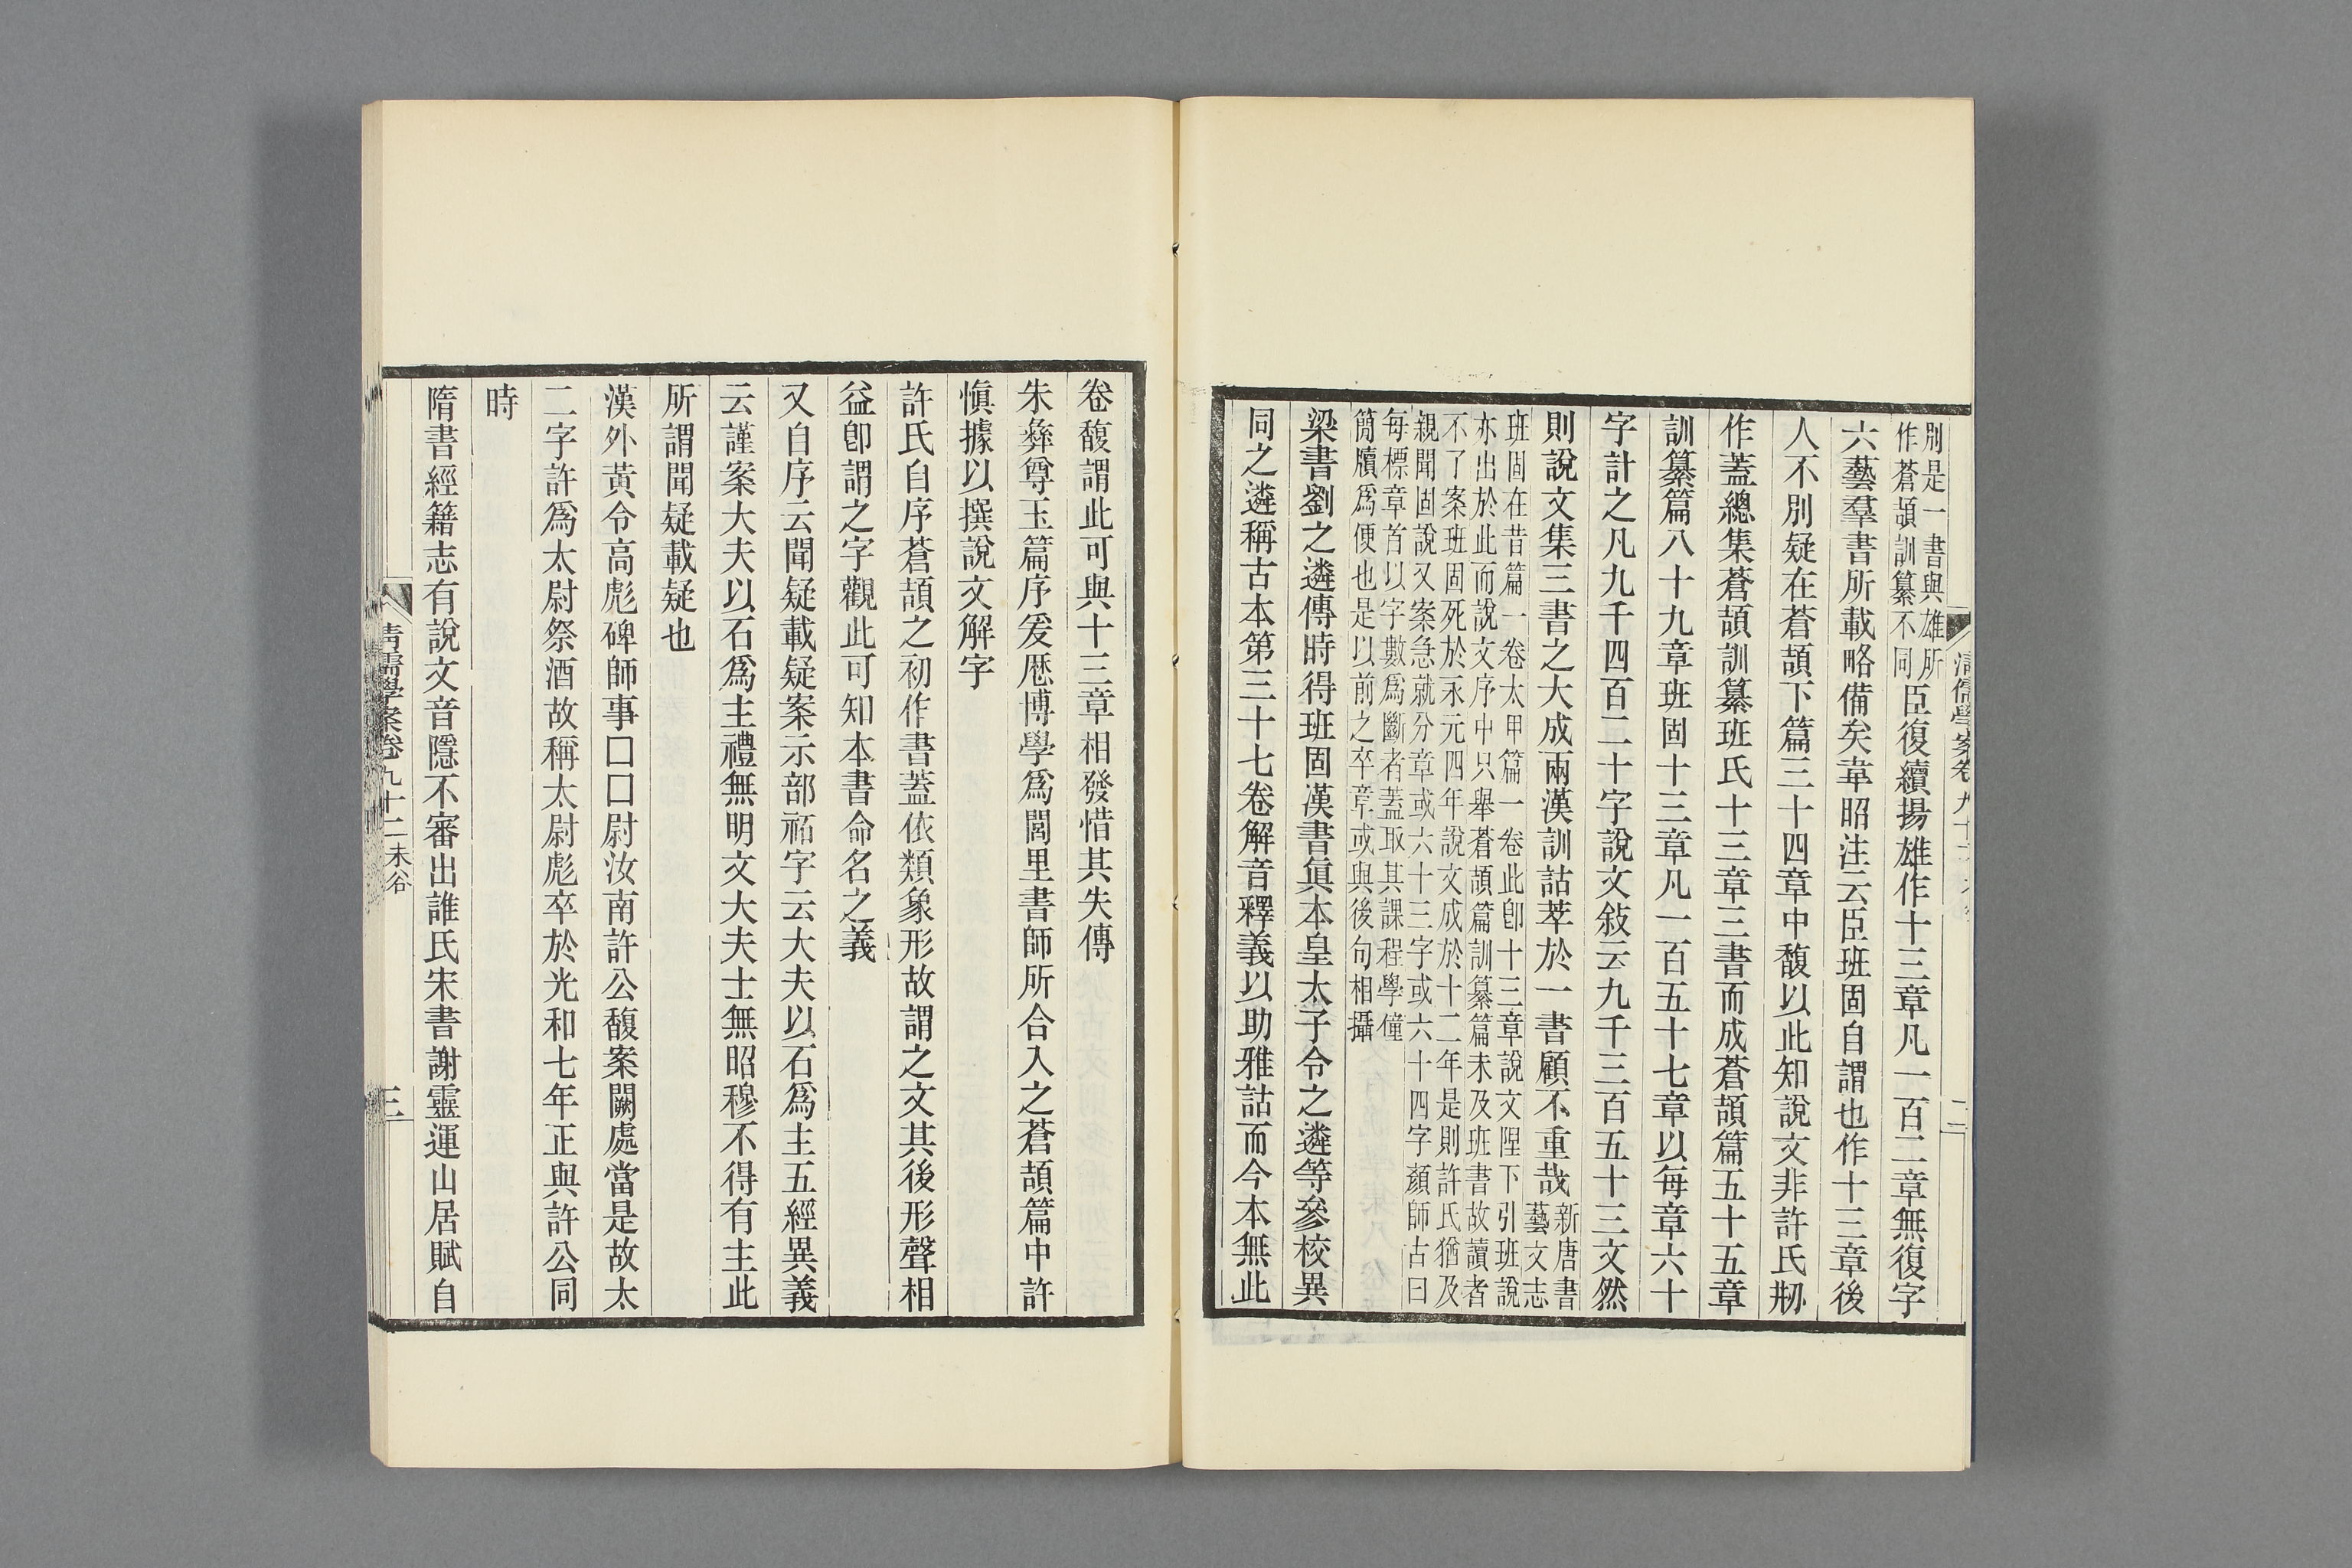 別是一書與雄所
作蒼頡訓纂不同
臣復續揚雄作十三章凡一百二章無復字
六藝羣書所載略備矣韋昭注云臣班固自謂也作十三章後
人不別疑在蒼頡下篇三十四章中馥以此知說文非許氏剏
作蓋總集蒼頡訓纂班氏十三章三書而成蒼頡篇五十五章
訓纂篇八十九章班固十三章凡一百五十七章以每章六十
字計之凡九千四百二十字說文敍云九千三百五十三文然
則說文集三書之大成兩漢訓詁萃於一書顧不重哉
新唐書
藝文志
班固在昔篇一卷太甲篇一卷此卽十三章說文陧下引班說
亦出於此而說文序中只舉蒼頡篇訓纂篇未及班書故讀者
不了案班固死於永元四年說文成於十二年是則許氏猶及
親聞固說又案急就分章或六十三字或六十四字顏師古曰
每標章首以字數爲斷者蓋取其課程學僮
簡牘爲便也是以前之卒章或與後句相攝
梁書劉之遴傳時得班固漢書眞本皇太子令之遴等參校異
同之遴稱古本第三十七卷解音釋義以助雅詁而今本無此
卷馥謂此可與十三章相發惜其失傳
朱彝尊玉篇序爰厯博學爲閭里書師所合入之蒼頡篇中許
愼據以撰說文解字
許氏自序蒼頡之初作書蓋依類象形故謂之文其後形聲相
益卽謂之字觀此可知本書命名之義
又自序云聞疑載疑案示部祏字云大夫以石爲主五經異義
云謹案大夫以石爲主禮無明文大夫士無昭穆不得有主此
所謂聞疑載疑也
漢外黃令高彪碑師事囗囗尉汝南許公馥案闕處當是故太
二字許爲太尉祭酒故稱太尉彪卒於光和七年正與許公同
時
隋書經籍志有說文音隱不審出誰氏宋書謝靈運山居賦自
清儒學案卷九十二 未谷
三